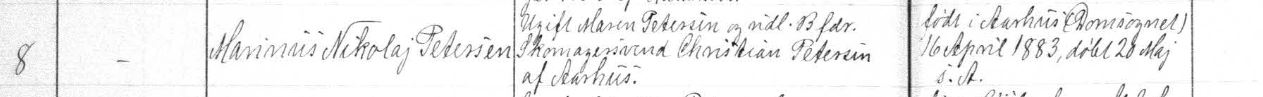 8 - Marinus Nikolaj Petersen
Ugift Maren Petersen og udl. Bfdr.
Skomagersvend Christian Petersen
af Aarhus.
født i Aarhus (Domsognet)
16 April 1883, døbt 20 Maj
s. A.